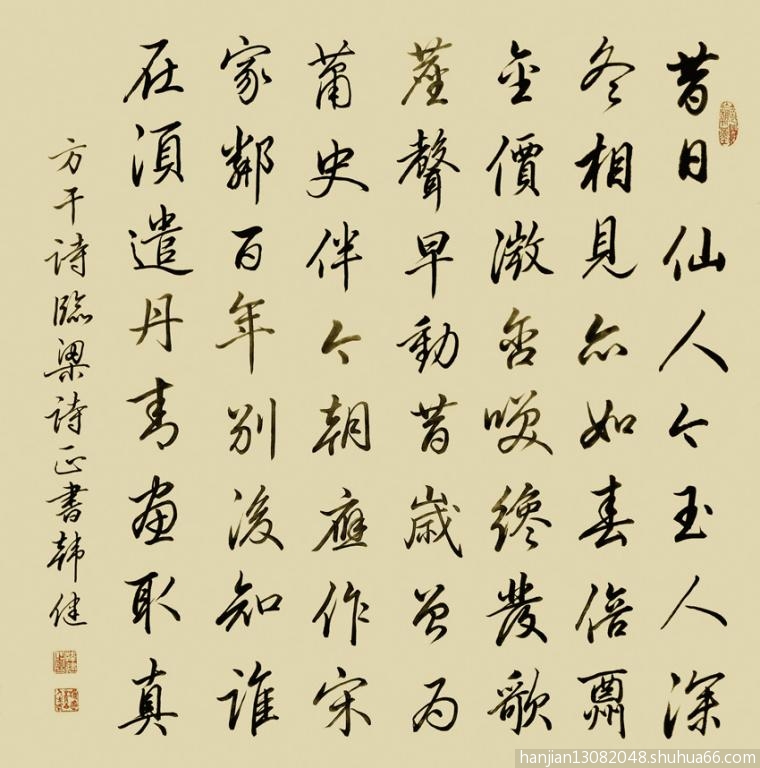 昔日仙人今玉人深
冬相見亦如春倍酬
金價微含咲纔發歌
塵聲早動昔歲曾为
蕭史伴今朝應作宋
家鄰百年別後知誰
在須遣丹青畫取真
方干诗臨梁诗正書韩健
hanjian13082048.shuhua66.com